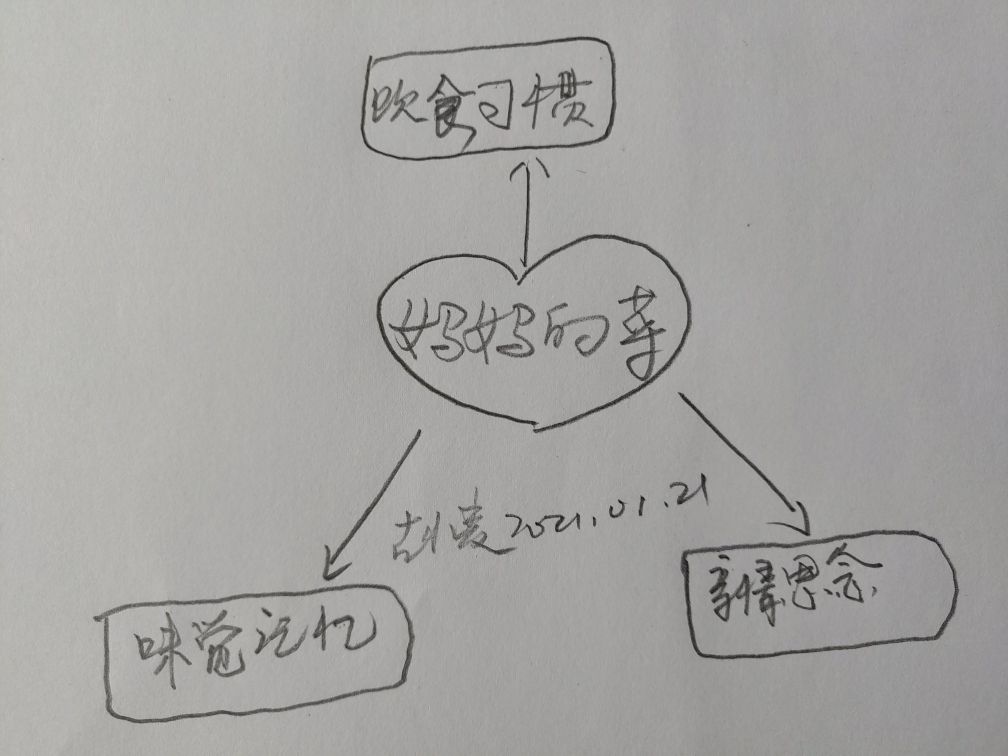 饮食习惯
妈妈的菜
胡麦2021.01.21
味觉记忆
亲情思念